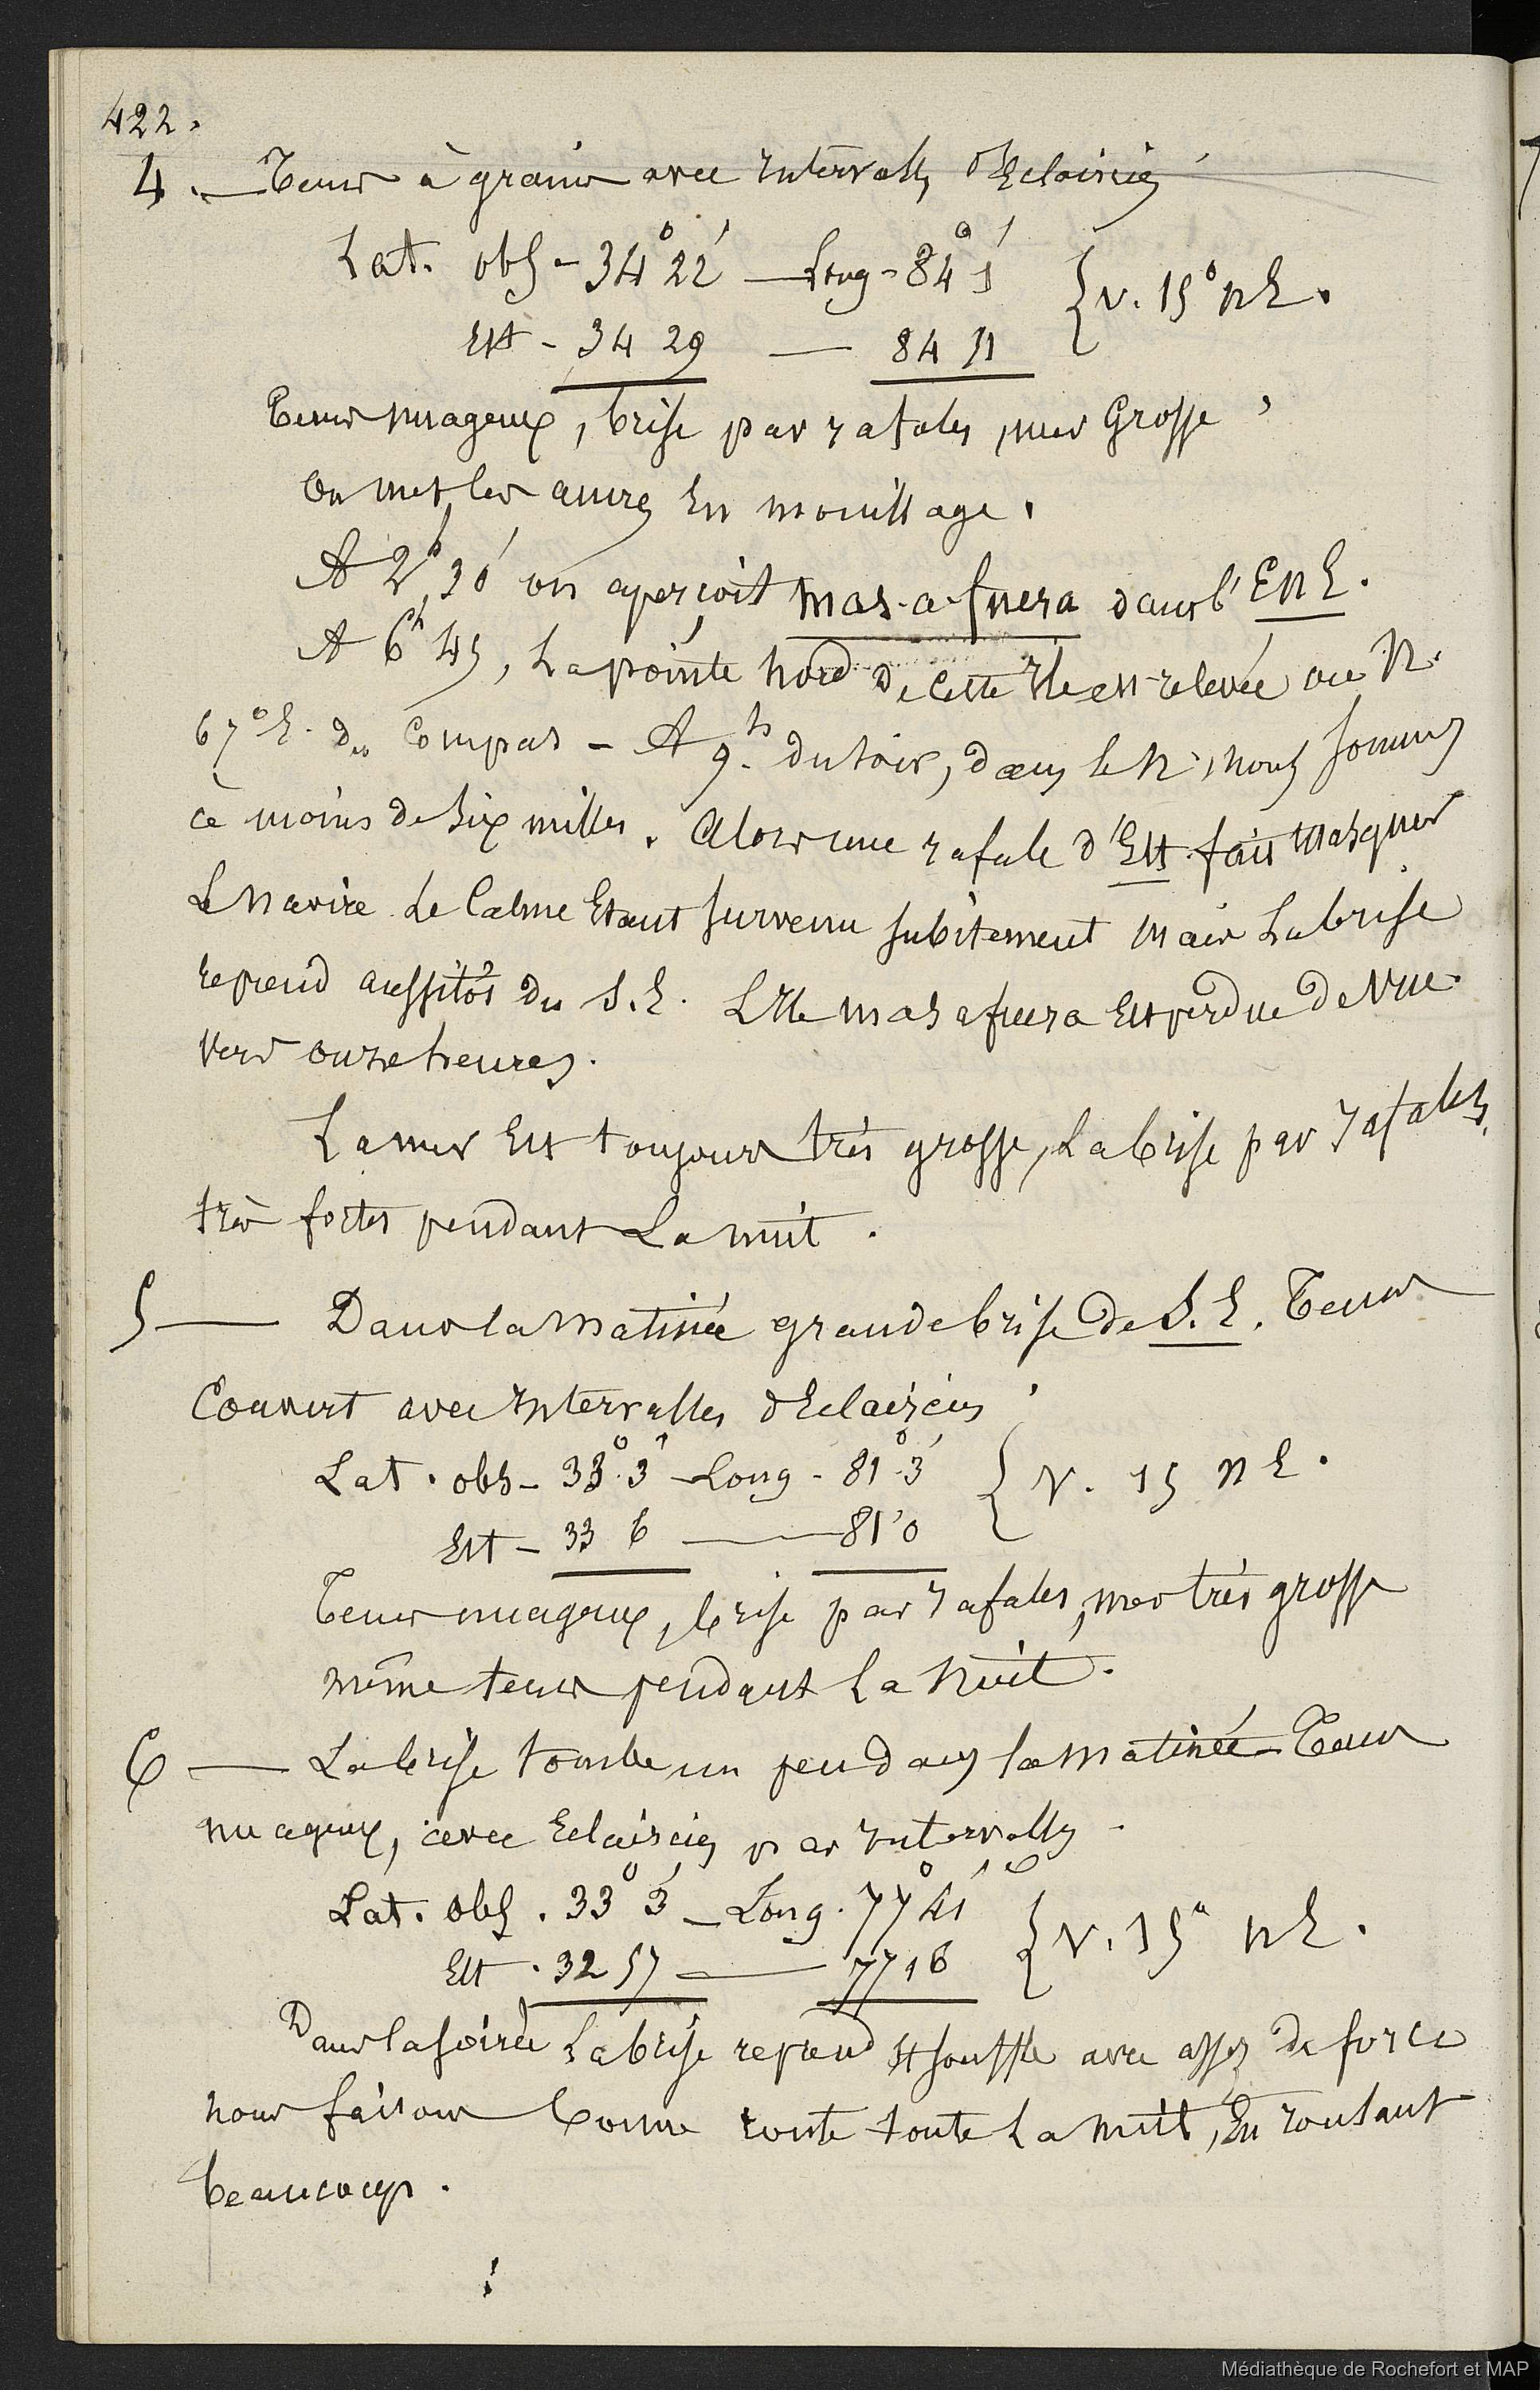 422.
4. — Tems à grains avec Intervalles d'Eclaircies
Lat. obs - 34° 22' — Long - 84° 1' { V. 15° NE.
Est - 34 29 — 84 11
Tems nuageux, brise par rafales, mer Grosse,
On met les ancres En mouillage.
A 2h, 30' on aperçoit mas-a-fuera dans l'ENE.
A 6h 45, La pointe Nord de cette Ile est relevée au N.
67° E. du Compas - A 9.h du soir, dans le N, nous sommes
à moins de Six milles. Alors une rafale d'Est fait masquer
Le Navire. Le Calme Etant survenu subitement mais La brise
reprend aussitôt du S.E. L'Ile mas afuera Est perdue de Vue
Vers onze heures.
La mer Est toujours très grosse, La brise par rafales,
très fortes pendant La nuit.
5 — Dans la Matinée grande brise de S.E. Tems
Couvert avec Intervalles d'Eclaircies
Lat. obs - 33° 3' - Long - 81° 3' { V. 15 NE.
Est - 33 6 — 81 0
Tems nuageux, brise par rafales, mer très grosse
même tems pendant La Nuit.
6 — La brise tombe un peu dans la Matinée - Tems
nuageux, avec Eclaircies par Intervalles.
Lat. obs. 33° 3' - Long. 77° 41' { V. 15° NE.
Est. 32 57 — 77 16
Dans la soirée La brise reprend et souffle avec assez de force
nous faisons bonne route toute La nuit, En roulant
beaucoup.
Médiathèque de Rochefort et MAP